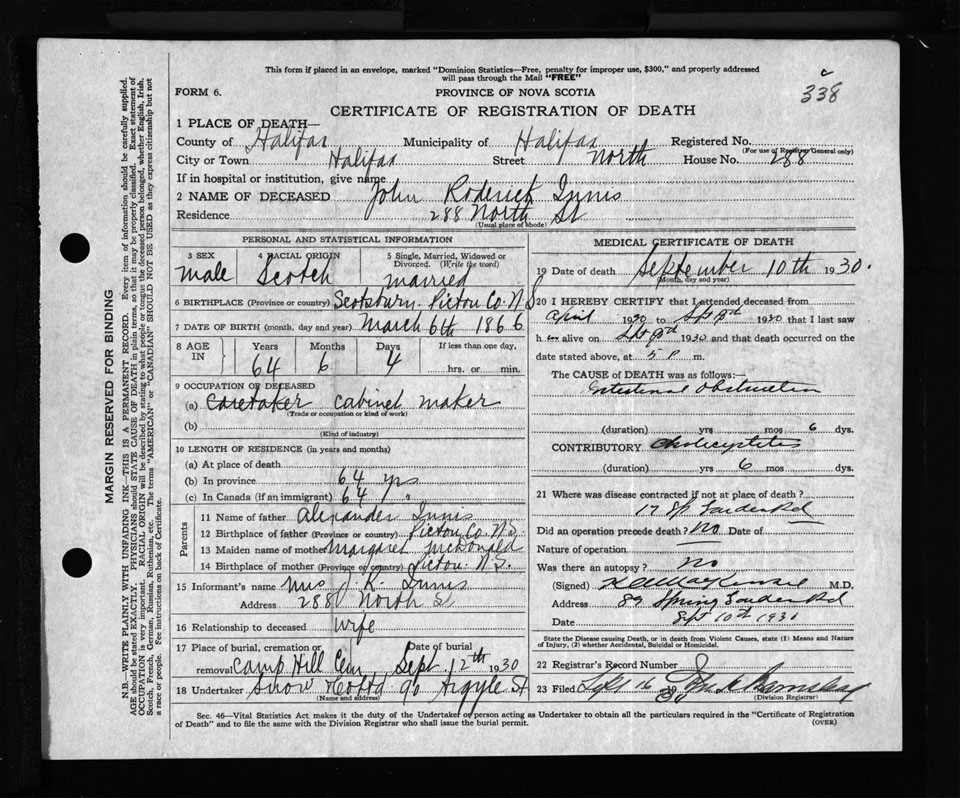 This form if placed in an envelope, marked "Dominion Statistics—Free, penalty for improper use, $300," and properly addressed
will pass through the Mail "FREE"
338
FORM 6.
PROVINCE OF NOVA SCOTIA
CERTIFICATE OF REGISTRATION OF DEATH
1 PLACE OF DEATH—
County of Halifax Municipality of Halifax Registered No.
(For use of Registrar General only)
City or Town Halifax Street North House No. 288
If in hospital or institution, give name
2 NAME OF DECEASED John Roderick Innis
Residence 288 North St
(Usual place of abode)
PERSONAL AND STATISTICAL INFORMATION
3 SEX 4 RACIAL ORIGIN 5 Single, Married, Widowed or Divorced. (Write the word)
male Scotch married
6 BIRTHPLACE (Province or country) Scotsburn Pictou Co N S
7 DATE OF BIRTH (month, day and year) March 6th 1866
8 AGE IN Years Months Days If less than one day,
64 6 4 hrs. or min.
9 OCCUPATION OF DECEASED
(a) caretaker cabinet maker
(Trade or occupation or kind of work)
(b)
(Kind of industry)
10 LENGTH OF RESIDENCE (in years and months)
(a) At place of death
(b) In province 64 yrs
(c) In Canada (if an immigrant) 64 "
Parents
11 Name of father Alexander Innis
12 Birthplace of father (Province or country) Pictou Co. N.S.
13 Maiden name of mother Margaret McDonald
14 Birthplace of mother (Province or country) Pictou N.S.
15 Informant's name Mrs J. R. Innis
Address 288 North St
16 Relationship to deceased wife
17 Place of burial, cremation or removal Camp Hill Cem Date of burial Sept. 12th 1930
18 Undertaker Snow & Co Ltd 90 Argyle St
(Name and address)
MEDICAL CERTIFICATE OF DEATH
19 Date of death September 10th 1930.
(Month, day and year)
20 I HEREBY CERTIFY that I attended deceased from
April 1930 to 1930 that I last saw
h alive on 1930 and that death occurred on the
date stated above, at 5 P m.
The CAUSE OF DEATH was as follows:—
Intestinal Obstruction
(duration) yrs mos 6 dys.
CONTRIBUTORY Cholecystitis
(duration) yrs. 6 mos dys.
21 Where was disease contracted if not at place of death?
17 Sp Garden Rd
Did an operation precede death? No Date of
Nature of operation
Was there an autopsy? No
(Signed) MacKenzie M.D.
Address 89 Spring Garden Rd
Date Sept 10th 1930
State the Disease causing Death, or in death from Violent Causes, state (1) Means and Nature
of Injury, (2) whether Accidental, Suicidal or Homicidal.
22 Registrar's Record Number
23 Filed 16
(Division Registrar)
Sec. 46—Vital Statistics Act makes it the duty of the Undertaker or person acting as Undertaker to obtain all the particulars required in the "Certificate of Registration
of Death" and to file the same with the Division Registrar who shall issue the burial permit. (OVER)
MARGIN RESERVED FOR BINDING
N.B.—WRITE PLAINLY WITH UNFADING INK—THIS IS A PERMANENT RECORD. Every item of information should be carefully supplied.
AGE should be stated EXACTLY. PHYSICIANS should STATE CAUSE OF DEATH in plain terms, so that it may be properly classified. Exact statement of
OCCUPATION is very important. RACIAL ORIGIN will be described by stating to what people or tongue the deceased person belonged, whether English, Irish,
Scotch, French, German, Russian, Ruthenian, etc. The terms "AMERICAN" or "CANADIAN" SHOULD NOT BE USED as they express citizenship but not
a race or people. See instructions on back of Certificate.